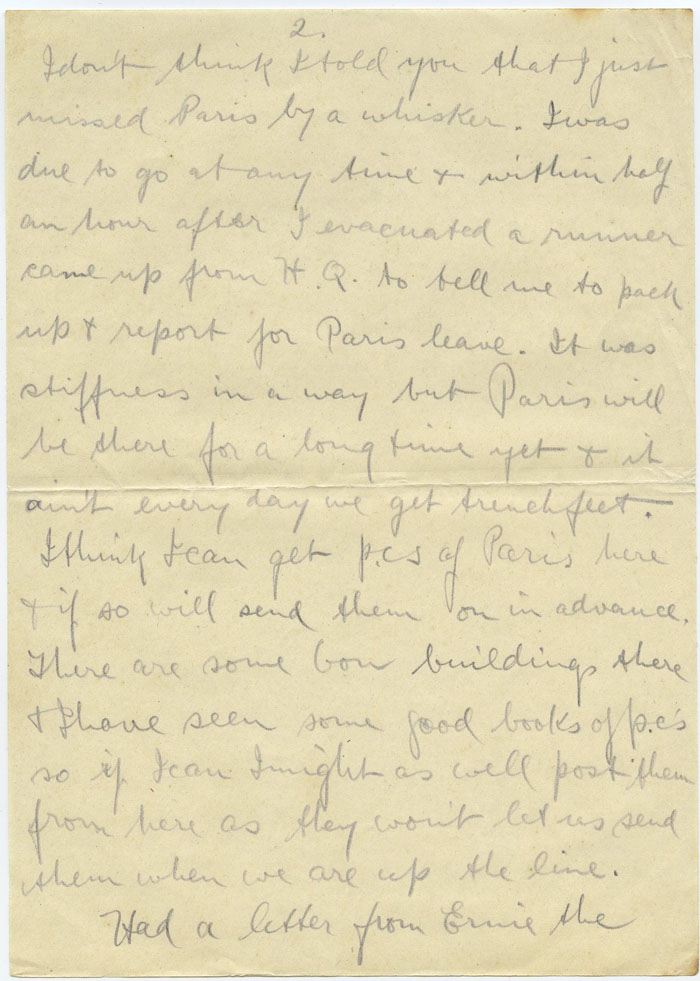 2.
I don't think I told you that I just
missed Paris by a whisker. I was
due to go at any time & within half
an hour after I evacuated a runner
came up from H.Q. to tell me to pack
up & report for Paris leave. It was
stiffness in a way but Paris will
be there for a long time yet & it
ain't every day we get trenchfeet.
I think I can get p.c.s of Paris here
& if so will send them on in advance.
There are some bon buildings there
& I have seen some good books of p.c's
so if I can I might as well post them
from here as they won't let us send
them when we are up the line.
Had a letter from Ernie the